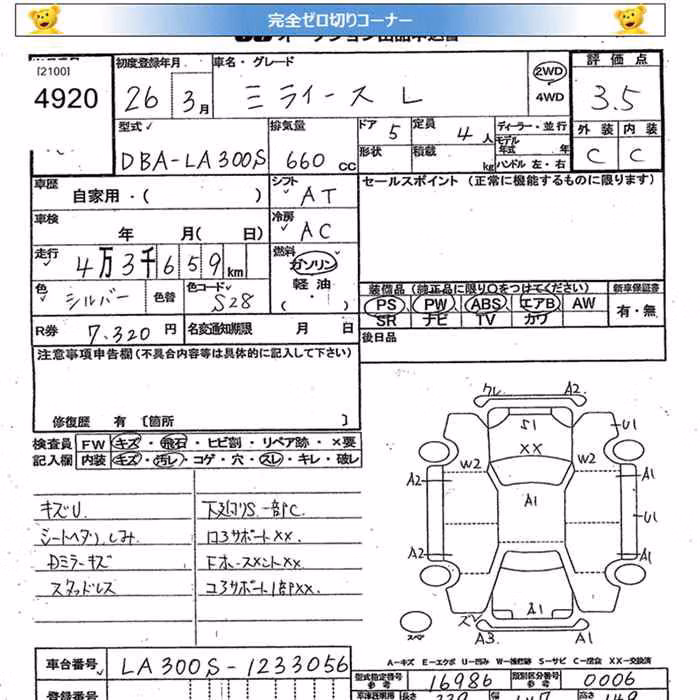 完全ゼロ切りコーナー
[2100]
4920
初度登録年月
26 3月
車名・グレード
ミライース L
2WD
4WD
評価点
3.5
外装 内装
C C
型式
DBA-LA300S
排気量
660 CC
ドア 5
形状
定員 4人
積載 kg
ディーラー・並行
モデル年式 年
ハンドル 左・右
車歴
自家用・( )
シフト
AT
セールスポイント (正常に機能するものに限ります)
車検
年 月( 日)
冷房
AC
走行
4万3千659km
燃料
ガソリン
軽油
( ・ )
色
シルバー
色替
色コード
S28
装備品 (純正品に限り○をつけてください)
PS PW ABS エアB AW
SR ナビ TV カワ
新車保証書
有・無
R券
7.320円
名変通知期限 月 日
後日品
注意事項申告欄(不具合内容等は具体的に記入して下さい)
修復歴 有 [箇所 ]
検査員記入欄
FW キズ・飛石・ヒビ割・リペア跡・×要
内装 キズ・汚レ・コゲ・穴・スレ・キレ・破レ
キズU.
シートヘタリ しみ
Dミラーキズ
スタッドレス
下廻りS 一部C
ロアサポートXX
コアサポート1部XX
A2
S1
U1
XX
W2 W2
A2 A1 A1
U1
A2 A1
A1
A3 A1
スペア
A-キズ E-エクボ U-凹み W-補修跡 S-サビ C-腐食 XX-交換済
車台番号
LA300S-1233056
型式指定番号
参考
16986
類別区分番号
参考
0006
登録番号